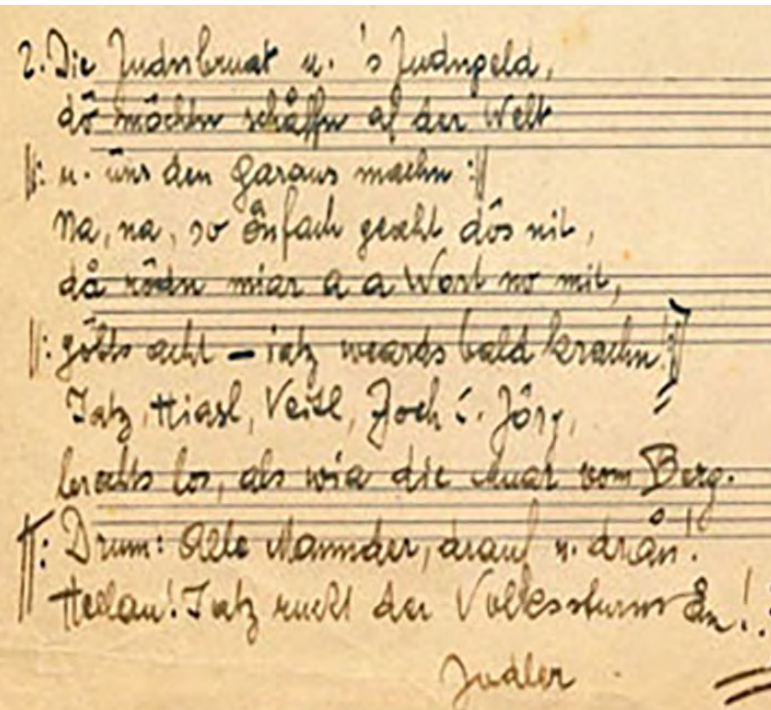 2. Die Judnbruat u. 's Judngeld,
dö möchtn schåffn af der Welt
‖: u. üns den Garaus machn :‖
Na, na, so ȫnfach geaht dös nit,
då rödn miar a a Wort no mit,
‖: göbts acht – iatz weards bald krachn! :‖
Iatz, Hiasl, Veitl, Joch u. Jörg,
brechts los, als wia die Muar vom Berg.
‖: Drum: Ålte Mannder, drauf u. drån!
Hellau! Iatz ruckt der Volkssturm ån! :‖
Jodler